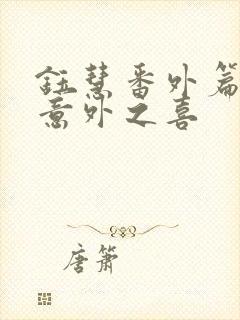 鈺慧番外篇
意外之喜
唐箫